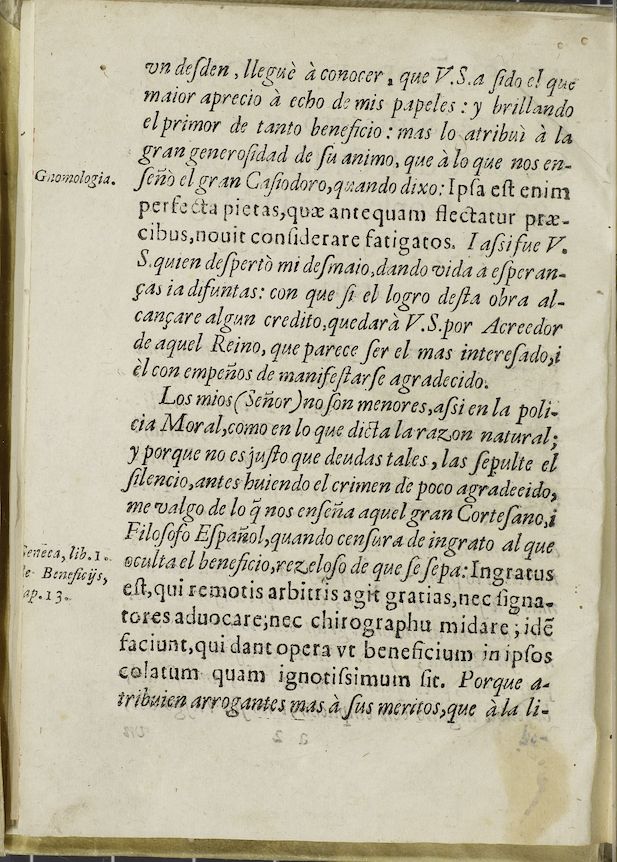 vn deſden, lleguè à conocer, que V.S.a ſido el que
maior aprecio à echo de mis papeles: y brillando
el primor de tanto beneficio: mas lo atribuì à la
gran generoſidad de ſu animo, que à lo que nos en-
Gnomologia.
ſeñò el gran Caſiodoro, quando dixo: Ipſa eſt enim
perfecta pietas, quæ antequam flectatur præ-
cibus, nouit conſiderare fatigatos. I aſsi fue V.
S. quien deſpertò mi deſmaio, dando vida a eſperan-
ças ia difuntas: con que ſi el logro deſta obra al-
cançare algun credito, quedarà V.S. por Acreedor
de aquel Reino, que parece ſer el mas intereſado, i
èl con empeños de manifeſtarſe agradecido.
Los mios (Señor) no ſon menores, aſsi en la poli-
cia Moral, como en lo que dicta la razon natural;
y porque no es juſto que deudas tales, las ſepulte el
ſilencio, antes huiendo el crimen de poco agradecido,
me valgo de lo q̃ nos enſeña aquel gran Corteſano, i
Filoſofo Eſpañol, quando cenſura de ingrato al que
Seneca, lib. 1.
de Beneficijs,
cap. 13.
oculta el beneficio, rezeloſo de que ſe ſepa: Ingratus
eſt, qui remotis arbitris agit gratias, nec ſigna-
tores aduocare; nec chirographu midare; idẽ
faciunt, qui dant opera vt beneficium in ipſos
colatum quam ignotiſsimum ſit. Porque a-
tribuien arrogantes mas à ſus meritos, que à la li-